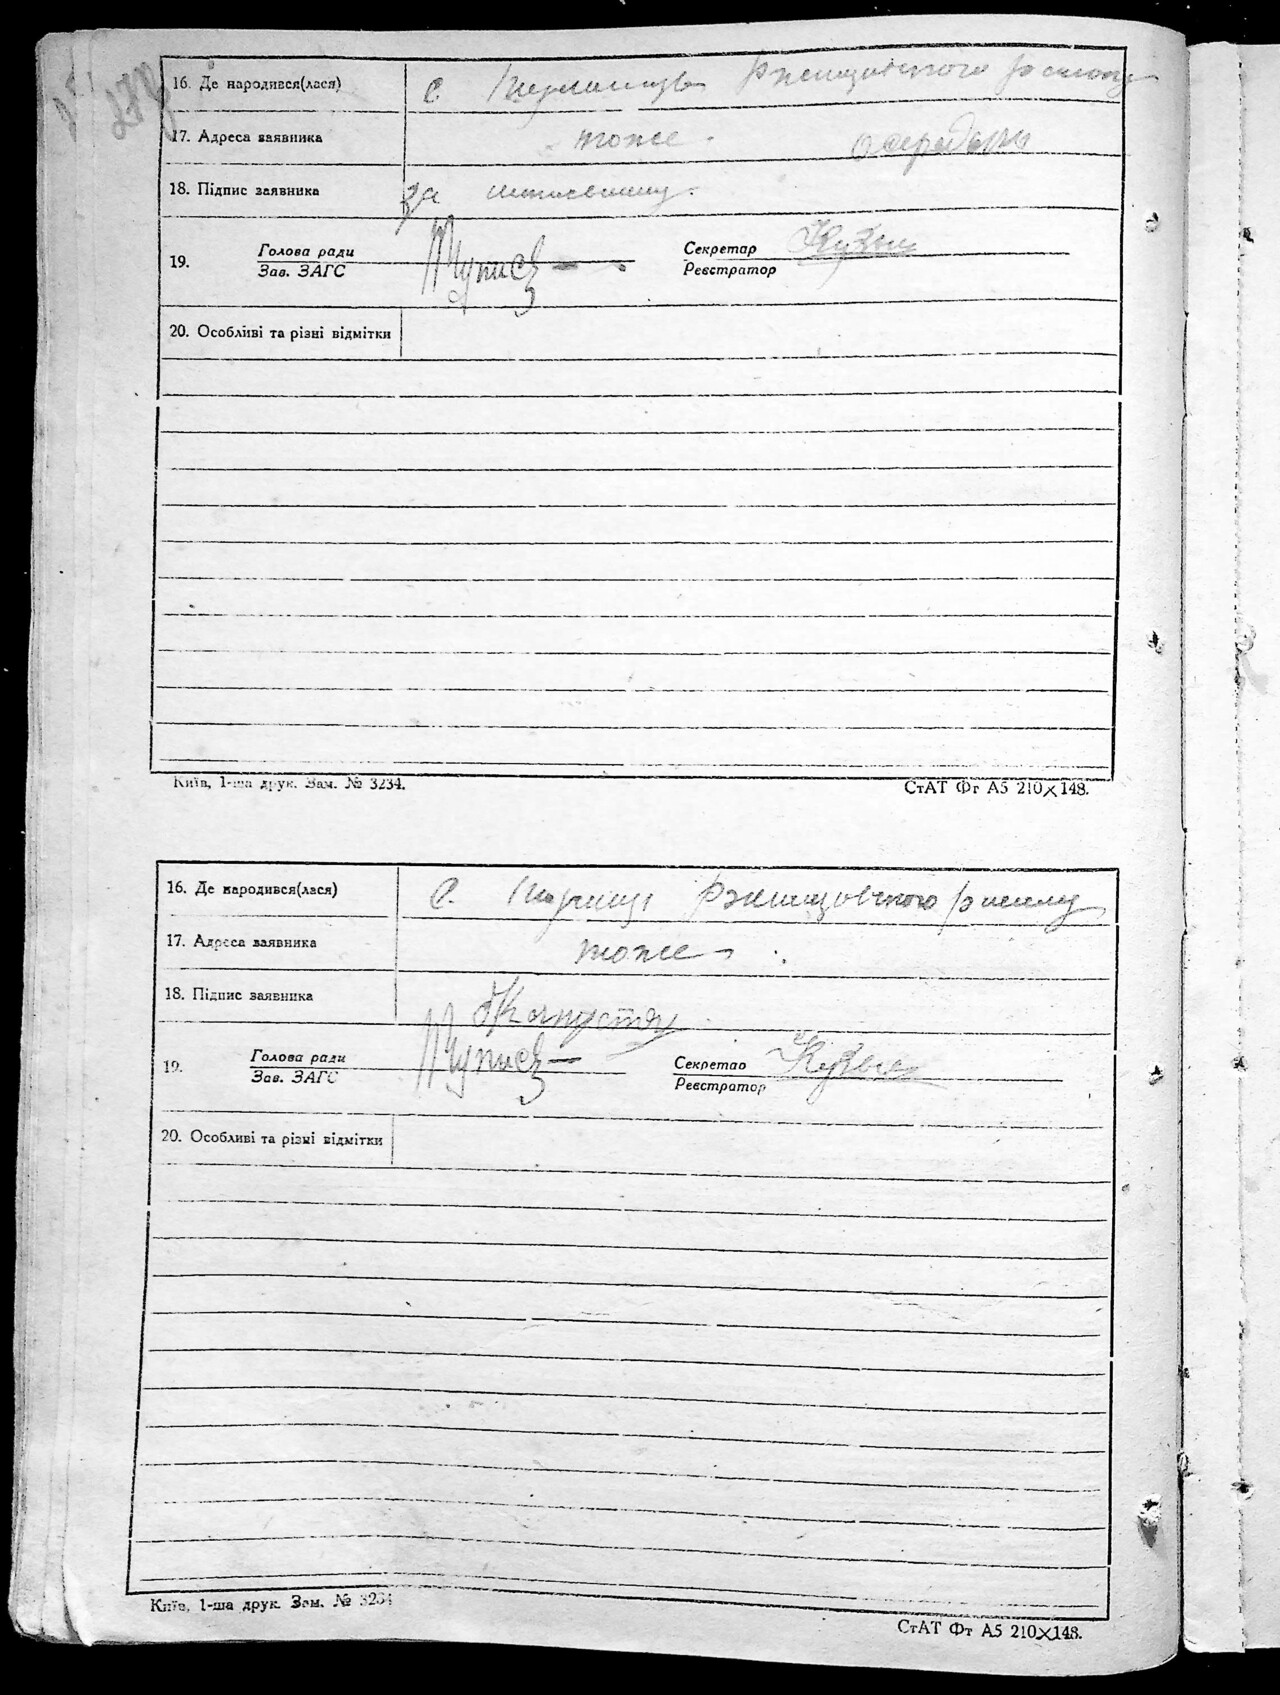 16. Де народився(лася) с. Ржищовського району
17. Адреса заявника тоже.
18. Підпис заявника за
19. Голова ради Секретар
Зав. ЗАГС Реєстратор
20. Особливі та різні відмітки
Київ, 1-ша друк. Зам. № 3234. СтАТ Фт А5 210×148.
16. Де народився(лася) с. Ржищовського району
17. Адреса заявника тоже
18. Підпис заявника
19. Голова ради Секретар
Зав. ЗАГС Реєстратор
20. Особливі та різні відмітки
Київ, 1-ша друк. Зам. № 3234
СтАТ Фт А5 210×148.